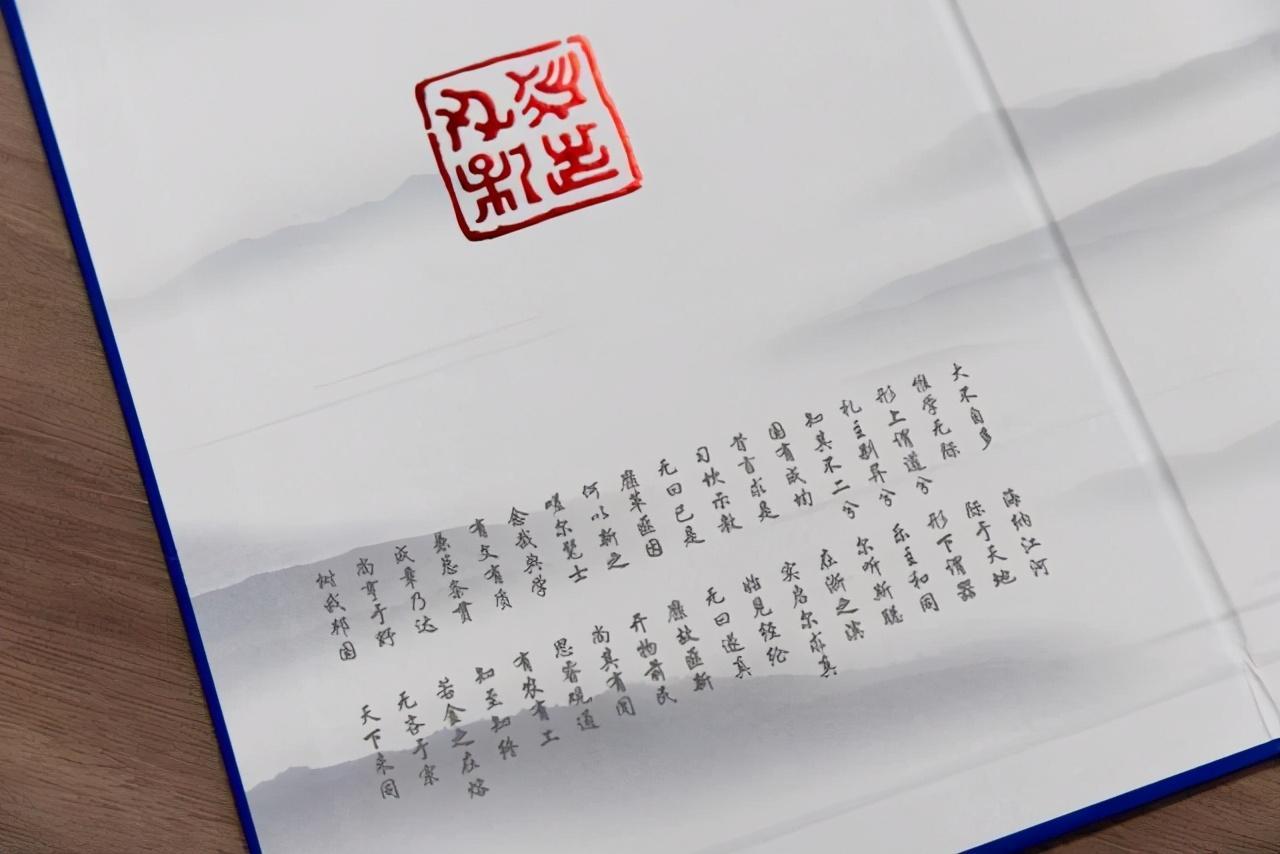 大不自多 海纳江河
惟学无际 际于天地
形上谓道兮 形下谓器
礼主别异兮 乐主和同
知其不二兮 尔听斯聪
国有成均 在浙之滨
昔言求是 实启尔求真
习坎示教 始见经纶
无曰已是 无曰遂真
靡革匪因 靡故匪新
何以新之 开物前民
嗟尔髦士 尚其有闻
念哉典学 思睿观通
有文有质 有农有工
兼总条贯 知至知终
成章乃达 若金之在熔
尚亨于野 无吝于宗
树我邦国 天下来同